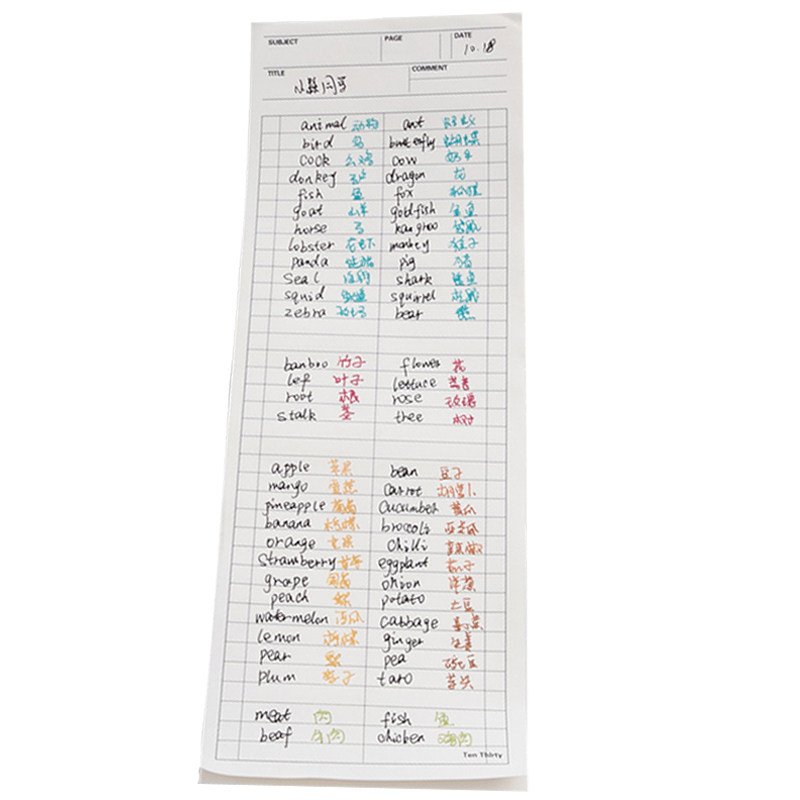 SUBJECT PAGE DATE
10.18
TITLE COMMENT
animal 动物 ant 蚂蚁
bird 鸟 butterfly 蝴蝶
cock 公鸡 cow 奶牛
donkey dragon 龙
fish 鱼 fox 狐狸
goat 山羊 goldfish 金鱼
horse 马 kangroo 袋鼠
lobster 龙虾 monkey 猴子
panda 熊猫 pig 猪
Seal 海豹 shark 鲨鱼
squid squirrel 松鼠
zebra 斑马 bear 熊
banboo 竹子 flower 花
lef 叶子 lettuce
root 根 rose 玫瑰
stalk 茎 tree 树
apple 苹果 bean 豆子
mango carrot 胡萝卜
pineapple cucumber 黄瓜
banana broccoli
orange chilli
strawberry eggplant 茄子
grape onion 洋葱
peach potato 土豆
watermelon 西瓜 cabbage
lemon 柠檬 ginger 生姜
pear pea 豌豆
plum taro 芋头
meat 肉 fish 鱼
beaf 牛肉 chicken 鸡肉
Ten Thirty